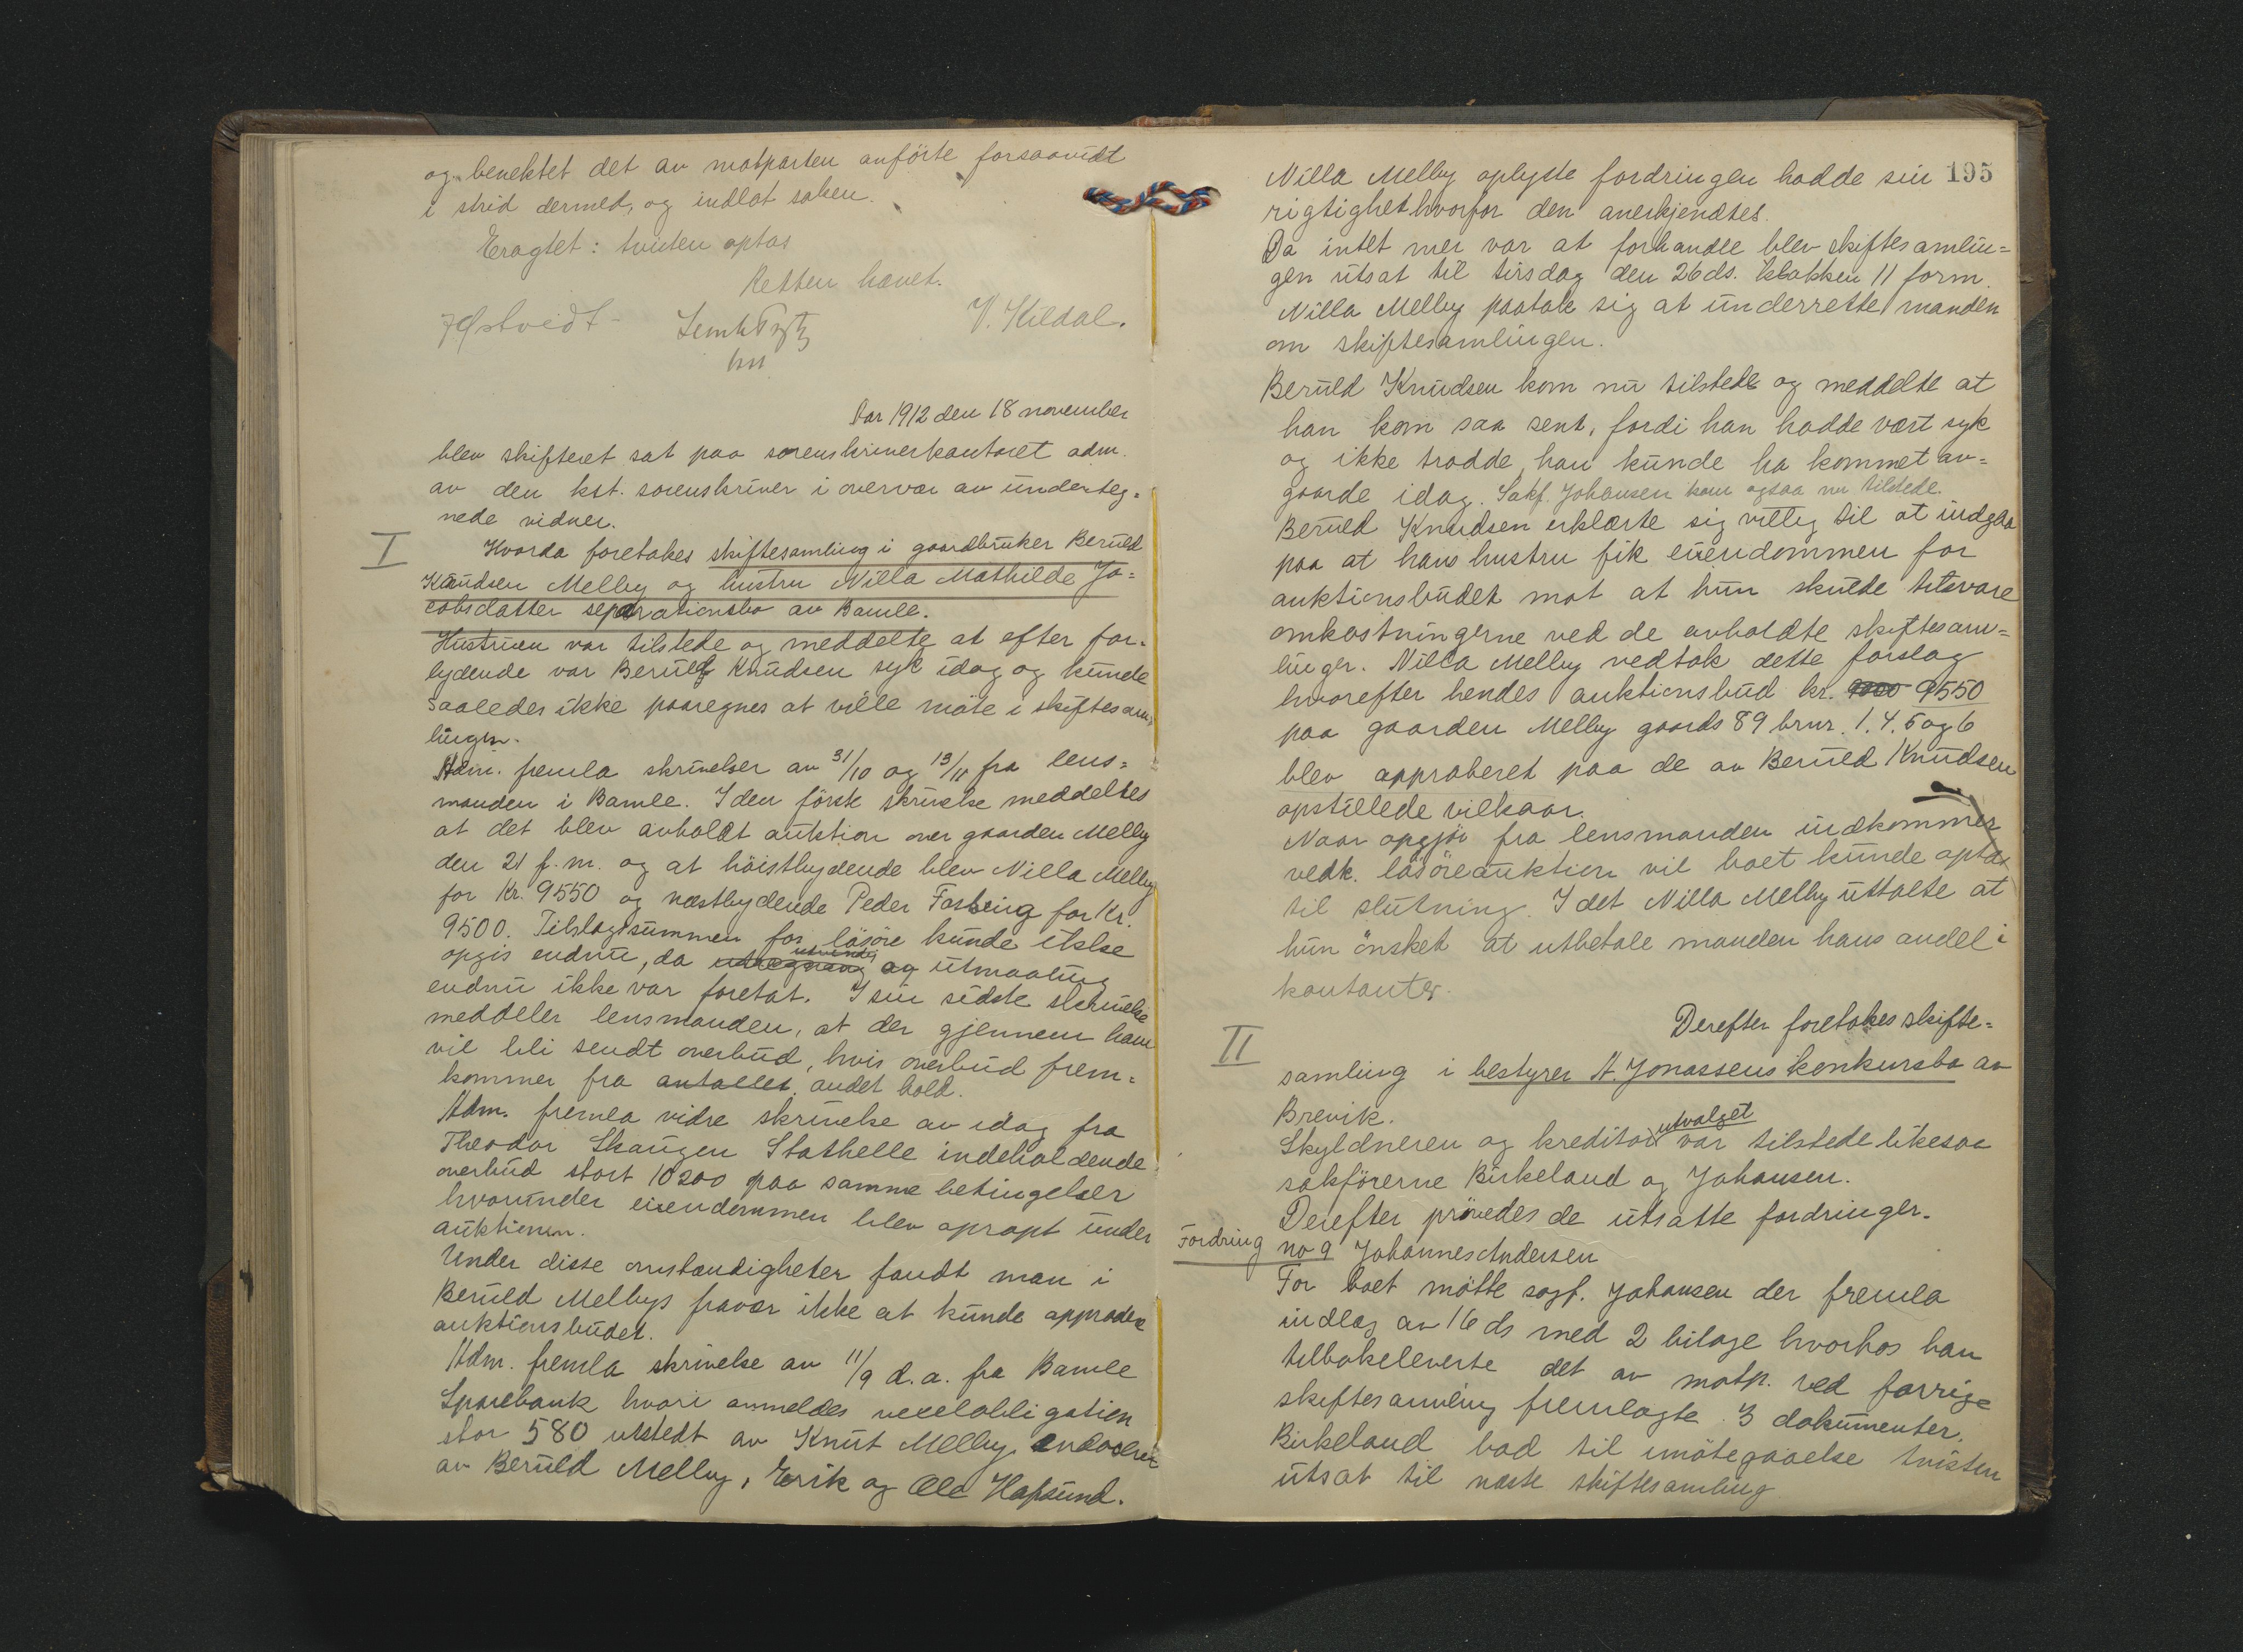 og benektet det av motparten anförte forsaavidt
i strid dermed, og indlot saken.
Eragtet: tvisten optas
Retten hævet.
V. Kildal.
Aar 1912 den 18 november
blev skifteret sat paa sorenskriverkontoret adm.
av den kst. sorenskriver i overvær av underteg=
nede vidner.
I
Hvorda foretokes skiftesamling i gaardbruker Beruld
Knudsen Melby og hustru Nilla Mathilde Ja=
cobsdatter separationsbo av Bamle.
Hustruen var tilstede og meddelte at efter for=
lydende var Beruld Knudsen syk idag og kunde
saaledes ikke paaregnes at ville möte i skiftesam=
lingen.
Adm. fremla skrivelser av 31/10 og 13/11 fra lens=
manden i Bamle. I den förste skrivelse meddeltes
at det blev avholdt auktion over gaarden Melby
den 21 f.m. og at höistbydende blev Nilla Melby
for Kr. 9550 og næstbydende Peder for Kr.
9500. Tilslagssummen for lösöre kunde ikke
opgis endnu, da utregning og utmaaling
endnu ikke var foretat. I sin sidste skrivelse
meddeler lensmanden, at der gjennem ham
vil bli sendt overbud, hvis overbud frem=
kommer fra antallet andet hold.
Adm. fremla vidre skrivelse av idag fra
Theodor Skaugen Stathelle indeholdende
overbud stort 10200 paa samme betingelser
hvorunder eiendommen blev opropt under
auktionen.
Under disse omstændigheter fandt man i
Beruld Melbys fravær ikke at kunde approbere
auktionsbudet.
Adm. fremla skrivelse av 11/9 d.a. fra Bamle
Sparebank hvori anmeldes vexelobligation
stor 580 utstedt av Knut Melby, endosert
av Beruld Melby, Erik og Ole Hafsund.
195
Nilla Melby oplyste fordringen hadde sin
rigtighet hvorfor den anerkjendtes.
Da intet mer var at forhandle blev skiftesamlin=
gen utsat til tirsdag den 26 ds. klokken 11 form.
Nilla Melby paatok sig at underrette manden
om skiftesamlingen.
Beruld Knudsen kom nu tilstede og meddelte at
han kom saa sent, fordi han hadde vært syk
og ikke trodde han kunde ha kommet av=
gaarde idag. Sakf. Johansen kom ogsaa nu tilstede.
Beruld Knudsen erklærte sig villig til at indgaa
paa at hans hustru fik eiendommen for
auktionsbudet mot at hun skulde tilsvare
omkostningerne ved de avholdte skiftesam=
linger. Nilla Melby vedtok dette forslag
hvorefter hendes auktionsbud kr. 9550
paa gaarden Melby gaards 89 brnr. 1, 4, 5 og 6
blev approberet paa de av Beruld Knudsen
opstillede vilkaar.
Naar opgjör fra lensmanden indkommer
vedk. lösöreauktion vil boet kunde optas
til slutning. I det Nilla Melby uttalte at
hun önsket at utbetale manden hans andel i
kontanter.
II
Derefter foretokes skifte=
samling i bestyrer A. Jonassens konkursbo av
Brevik.
Skyldneren og kreditorutvalget var tilstede likesaa
sakförerne Birkeland og Johansen.
Derefter prövedes de utsatte fordringer.
Fordring no 9 Johannes Andersen
For boet mötte sagf. Johansen der fremla
indlæg av 16 ds med 2 bilage hvorhos han
tilbakeleverte det av motp. ved forrige
skiftesamling fremlagte 3 dokumenter.
Birkeland bad til imötegaaelse tvisten
utsat til næste skiftesamling